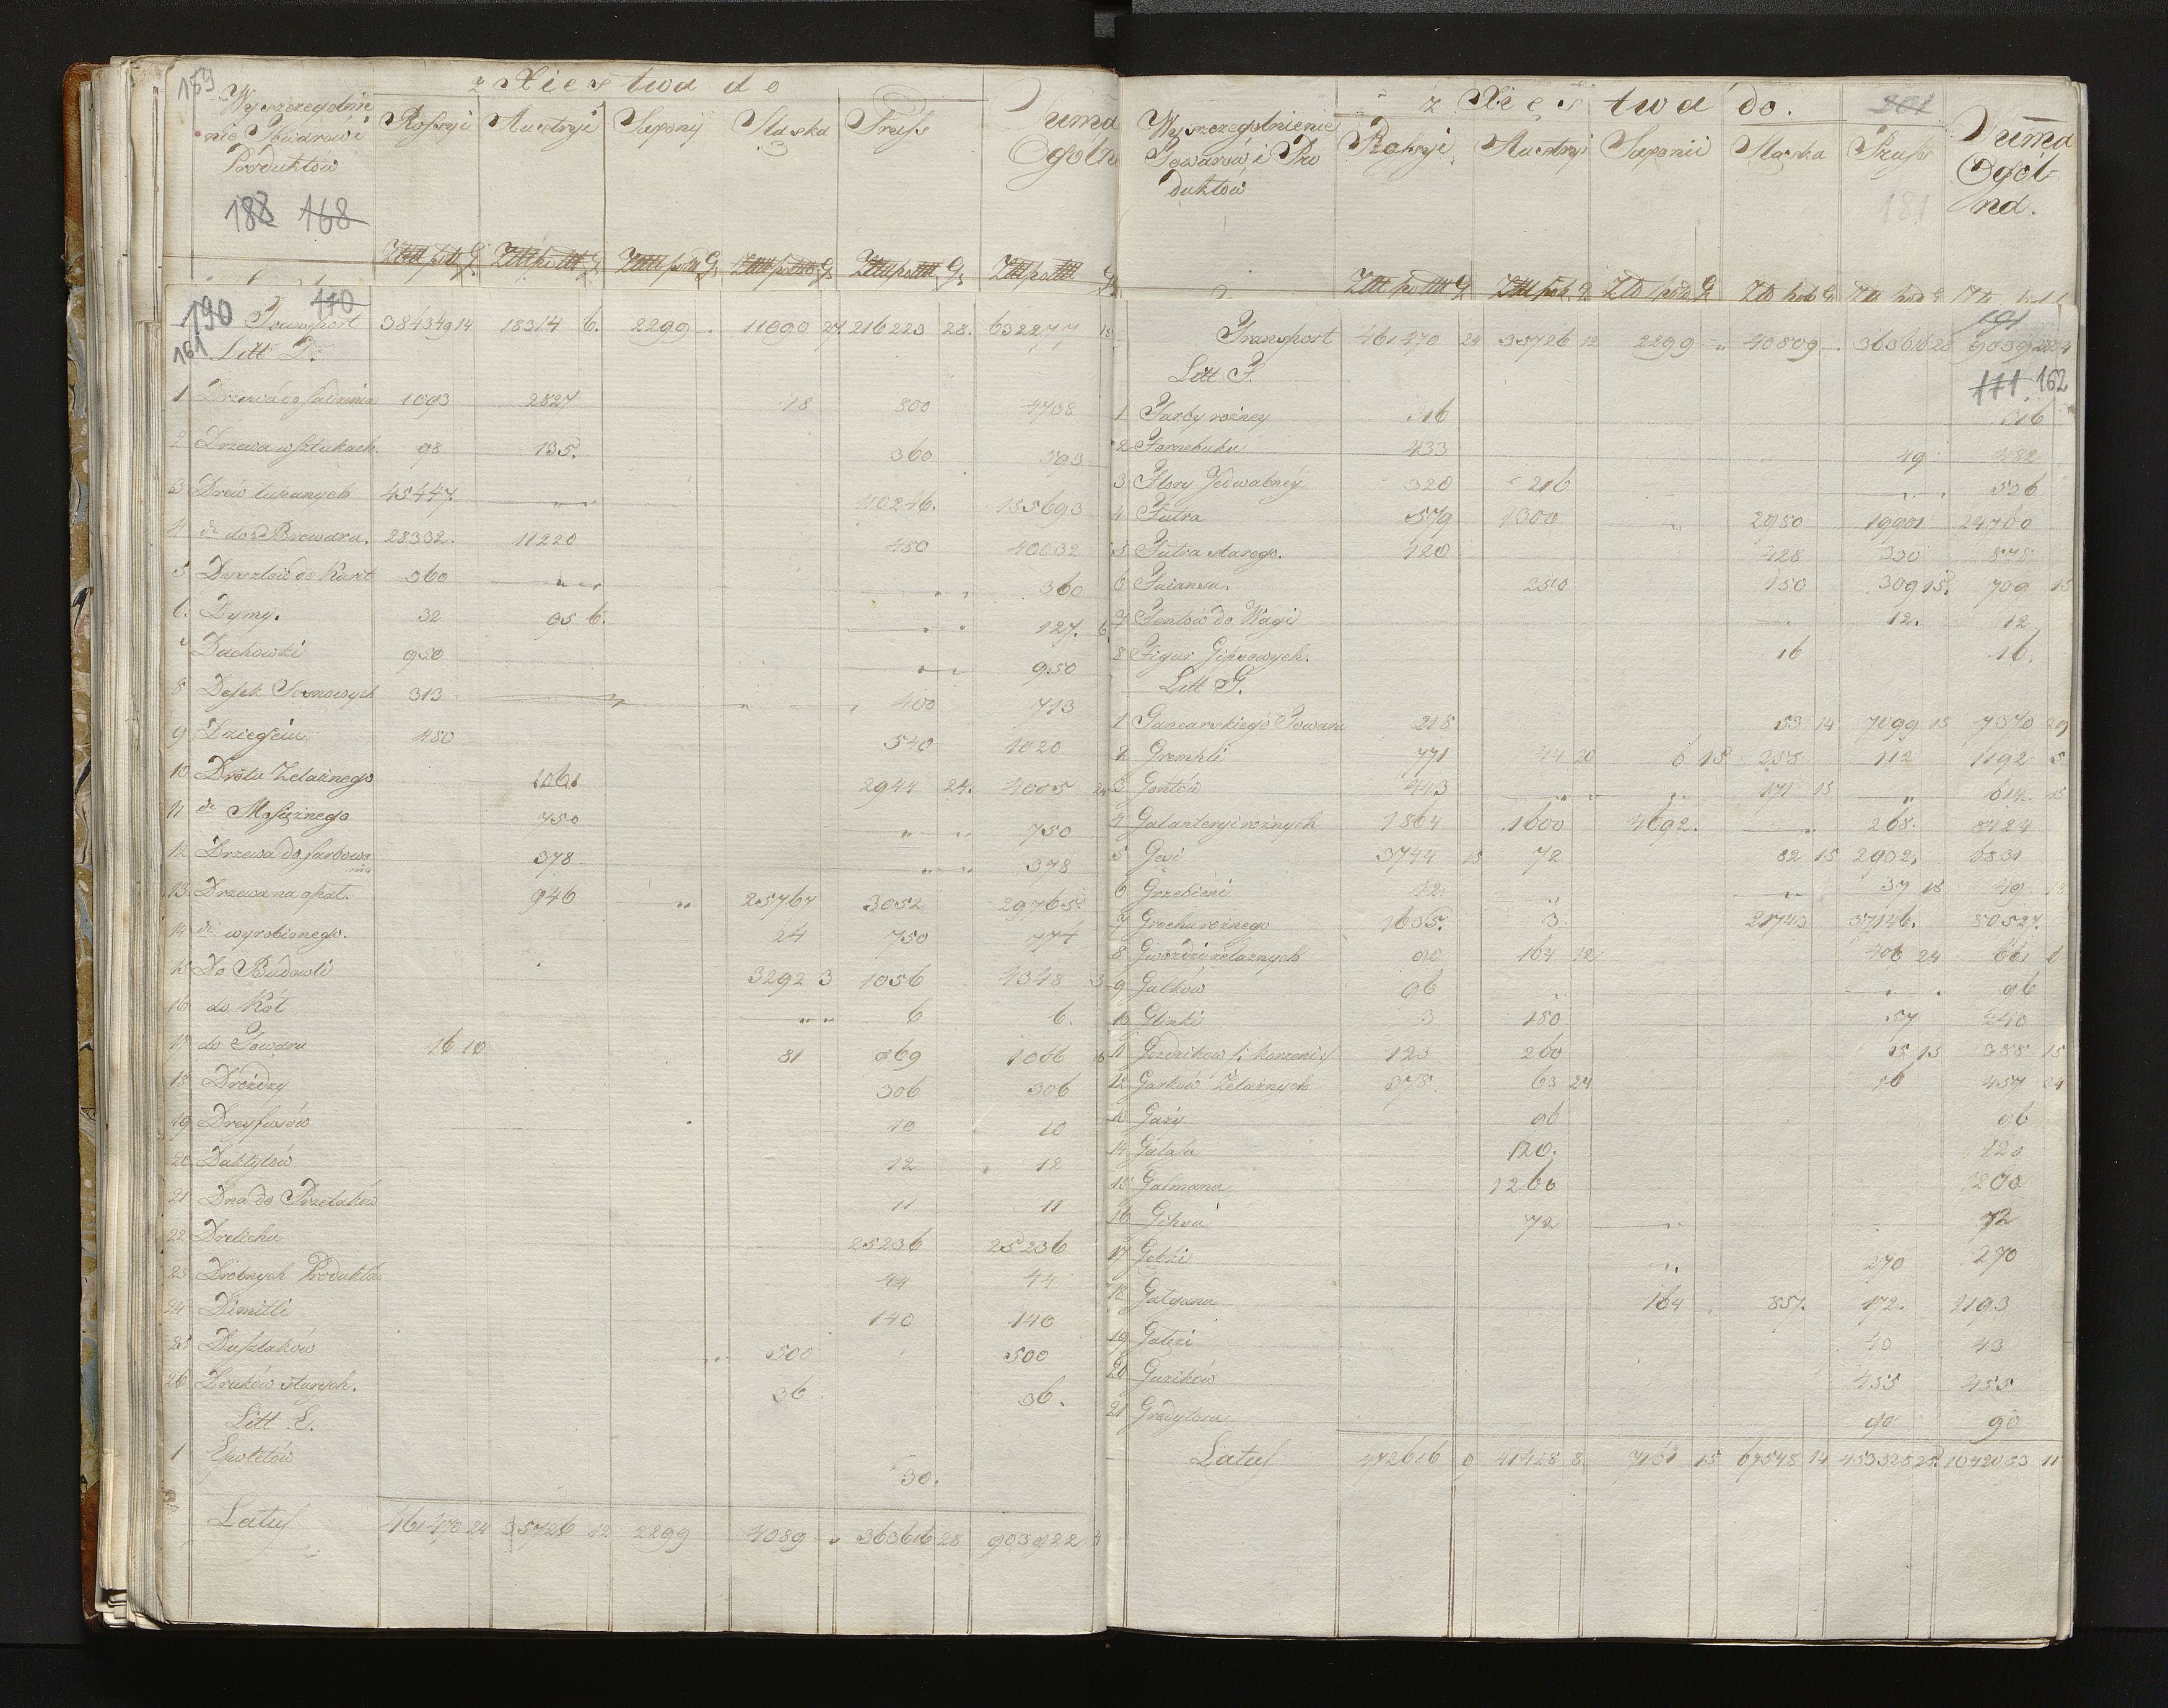 159
z Xiestwa do
Wyszczegolnie
nie Towarów i
Produktow
Rossyi Austryi Saxonij Slaska Pruss Suma Ogolna
188 168
190 110
161
Transport 384349 14 18314 6. 2299 . 11090 27. 216223 28. 632277 15
Litt D.
1 1003 2827 18 800 4708
2 Drzewa w Sztukach. 98 135. 360 593
3 Drew lupanych 45447. 110246. 155693
4 do Browaru. 28332. 11220 480 40032
5 360 360
6. Dymy. 32 95 6. 127. 6
Dachowki 950 950
8 Desek Sosnowych 313 400 713
9 Dziegciu 480 540 1020
10 Drotu Zelaznego 1061 2944 24. 4005 24
11 do Mosiężnego 750 750
12 Drzewa do farbowa
nia 378 378
13 Drzewa na opal. 946 25767 3052 29765
14 do wyrobionego. 24 750 774
15 Do Budowli 3292 3 1056 4348 3
16 do Kół 6 6.
17 do Towaru 16 10 81 969 1066 10
18 Drożdzy 306 306
19 Dreyfusów 10 10
20 Daktylów 12 12
21 Dna do Przetaków 11 11
22 Drelichu 25236 25236
23 Drobnych Produktów 44 44
24 Dimitti 140 140
25 Duszlaków 500 500
26 Druków starych. 36 36.
Litt E.
1 Epoletów 30.
Latus 461470 24 35726 12 2299 4089 363616 28 903922 4
z Xięstwa do. 301
Wyszczegolnienie
Towarów i Pro
duktów
Rossyi Austryi Saxonii Slaska Pruss Suma
Ogól-
na.
181
191
Transport 461470 24 35726 12 2299 40809 363616 28 903922 4
Litt F.
111 162
1 Farby rożney 316 316
2 Fornebuku 433 49 482
3 Flory Jedwabney 320 216 536
4 Futra 579 1300 2980 19901 24760
5 Futra starego. 120 428 330 878
6 Faiansu. 250 150 309 15. 709 15
7 Fontów do Wagi 12. 12
8 Figur Gipsowych. 16 16.
Litt G.
1 Garcarskiego Towaru 218 53 14 7099 15 7370 29
2 Grempli 771 44 20 6 15 258 112 1192 5
3 Gontów 443 171 15 614 15
4 Galanteryi rożnych 1864 1600 4692. 268. 8424
5 Gęsi 3744 15 72 82 15 2902. 6831
6 Grzebieni 12 37 18 49 18
7 Grochu rożnego 1635. 3. 21743 57146. 80527.
8 Gwoździ żelaznych 90 164 12 406 24 661 6
9 Gałków 96 96
10 Glinki 3 180 57 240
11 Gozdzików t: korzeni:/ 123 260 5 15 388 15
12 Garków Żelaznych 378 63 24 16 457 24
13 Gazy 96 96
14 Galasu 120. 120
15 Galmanu 1260 1260
16 Gipsu 72 72
17 Gębki 270 270
18 Galganu 164 857. 172. 1193
19 40 40
20 Guzików 455 455
21 90 90
Latus 472616 9 41428 8 7161 15 67548 14 453328 25 1042083 11